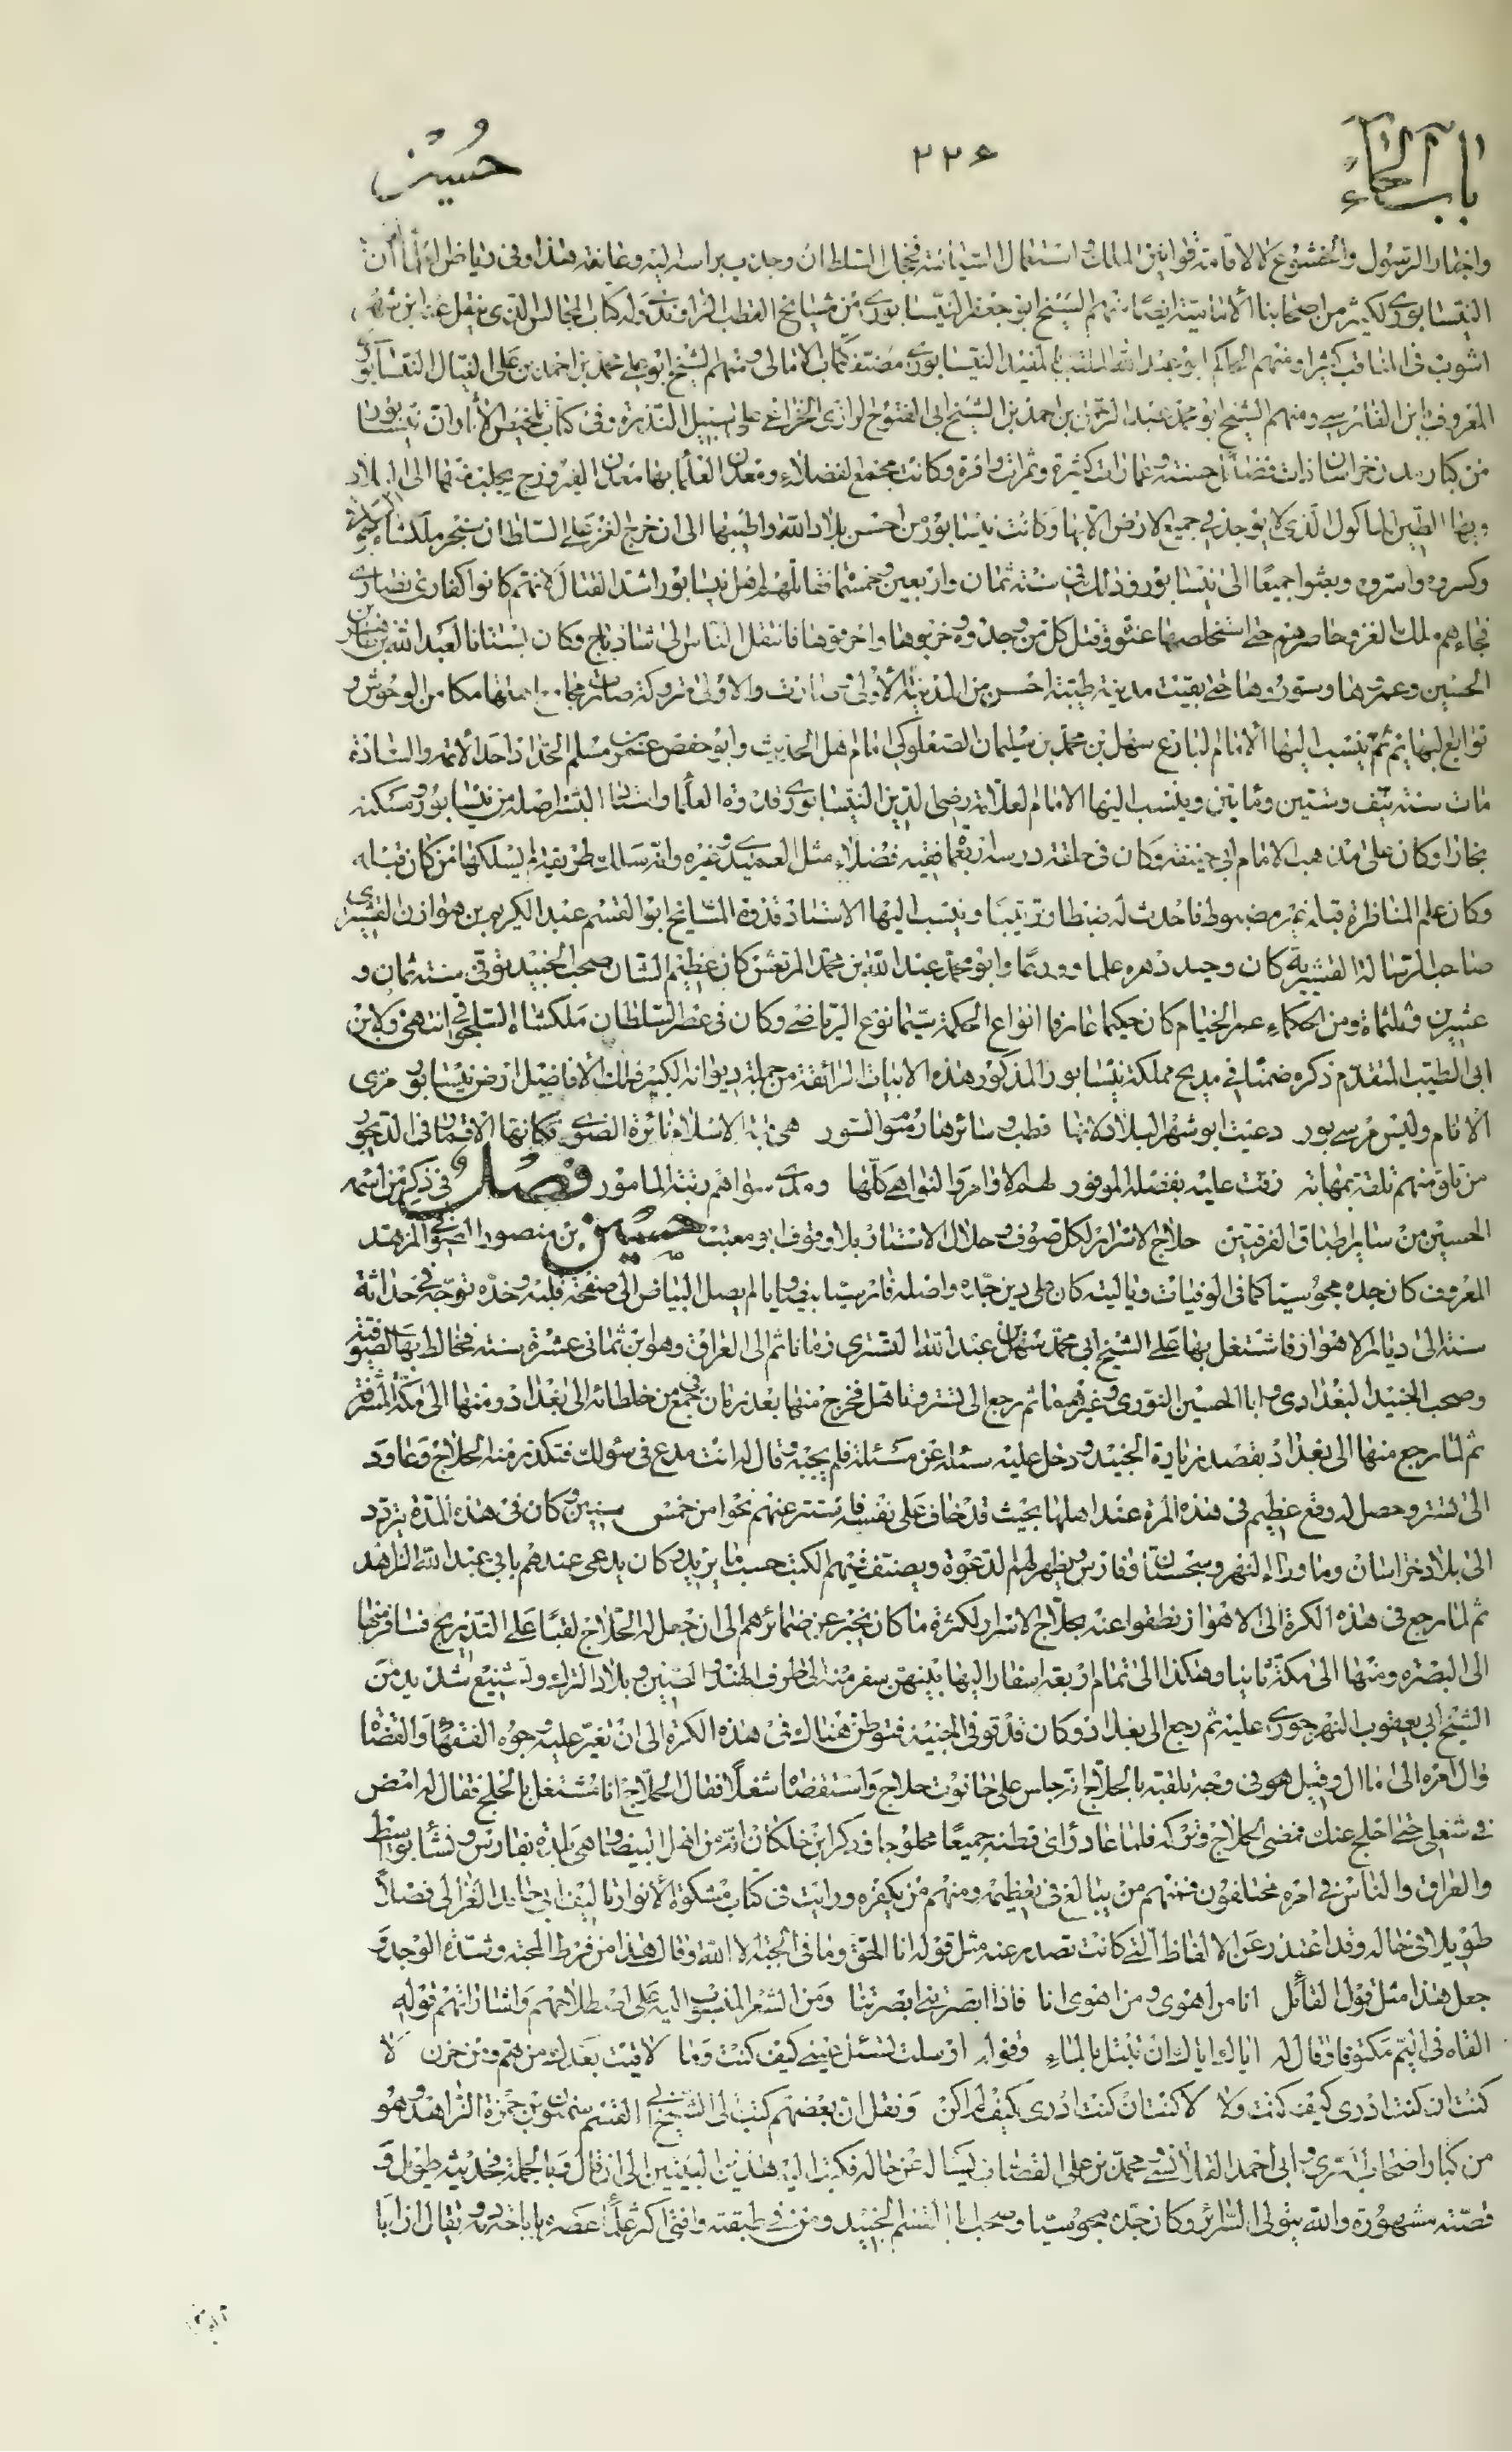 باب الحاء
٢٢۶
حسين
واجبار الرسول والخشوع كالاقامة قوانين الملك واستعمال السياسة فخجل السلطان وجذب براسه اليه وعانقه هذا وفى رياض العلماء ان
النيسابورى لكثير من اصحابنا الامامية ايضا منهم الشيخ ابو جعفر النيسابورى من مشايخ القطب الراوندى وله كتاب المجالس الذى ينقل عنه ابن شهر
اشوب فى المناقب كثيرا ومنهم الحاكم ابو عبد الله الملقب بالمفيد النيسابورى مصنف كتاب الامالى ومنهم الشيخ ابو على محمد بن احمد بن على الفتال النيسابورى
المعروف بابن الفارسى ومنهم الشيخ ابو محمد عبد الرحمن بن احمد بن الشيخ ابى الفتوح الرازى الخزاعى على سبيل الندرة وفى كتاب تلخيص الآثار ان نيسابور
من كبار مدن خراسان ذات فضائل حسنة وعمارات كثيرة وثمرات وافرة وكانت مجمع الفضلاء ومعدن العلماء بها معدن الفيروزج يجلب منها الى البلاد
وبها الطين الماكول الذى لا يوجد فى جميع الارض الا بها وكانت نيسابور من احسن بلاد الله واطيبها الى ان خرج الغز على السلطان سنجر ملكشاه
وكسروه واسروه وبعثوا جميعا الى نيسابور وذلك فى سنة ثمان واربعين وخمسمائة فقاتلهم اهل نيسابور اشد القتال لانهم كانوا كفارى نصارى
فجاءهم ملك الغز وحاصرهم حتى استخلصها عنوة وقتل كل من وجدوه وخربوها واحرقوها فانتقل الناس الى شادياج وكان بستانا لعبد الله بن طاهر بن
الحسين وعمروها وسوروها حتى بقيت مدينة طيبة احسن من المدينة الاولى والاولى متروكة صارت مكامن الوحوش و
توابع البهايم ثم ينسب اليها الامام البارع سهل بن محمد بن سليمان الصعلوكى امام اهل الحديث وابو حفص عمر بن مسلم الحداد احد الائمه والسادة
مات سنة نيف وستين ومأتين وينسب اليها الامام العلامة رضى الدين النيسابورى قدوة العلما واستاد البشر اصله من نيسابور ومسكنه
بخارا وكان على مذهب الامام ابى حنيفة وكان فى حلقة درسه اربعمأ فقيه فضلاء مثل العميدى وغيره وانه سلك طريقة لم يسلكها من كان قبله
وكان علم المناظرة قبله غير مضبوط فاحدث له ضبطا وترتيبا وينسب اليها الاستاد قدوة المشايخ ابو القسم عبد الكريم بن هوازن القشيرى
صاحب الرسالة القشيرية كان وحيد دهره علما وورعا وابو محمد عبد الله بن محمد المرتعش كان عظيم الشان صحب الجنيد توفى سنة ثمان و
عشرين وثلثمأة ومن الحكماء عمر الخيام كان حكيما عارفا انواع الحكمة سيما نوع الرياضى وكان فى عصر السلطان ملكشاه السلجوقى انتهى ولابن
ابى الطيب المتقدم ذكره ضمنا فى مديح مملكة نيسابور المذكور هذه الابيات الرائقة من جملة ديوانه الكبير فملت الافاضيل ارض نيسابور مرسى
الانام وليس مرسى بور دعيت ابو شهر البلاد لانها قطب وسائرها رسوم السور هى قبة الاسلام نائرة الضوى فكانها الاقمار فى الديجور
من تلق منهم تلقه بمهابة زفت عليه بفضله الموفور لهم الاوامر والنواهى كلها ومدى سواهم رتبة المامور فصل فى ذكر من اسمه
الحسين من ساير اطباق الفريقين حلاج الاسرار لكل صوف وحلال الاستار بلا وقوف ابو مغيث حسين بن منصور الصوفى المزهد
المعروف كان جده مجوسيا كما فى الوفيات وياليته كان على دين جده واصله فارسيا بيضاويا لم يصل البياض الى صفحة قلبه وخده توجه فى حداثة
سنه الى ديار الاهواز فاشتغل بها على الشيخ ابى محمد سهل بن عبد الله التسترى زمانا ثم الى العراق وهو ابن ثمانى عشرة سنة فخالط بها الصوفية
وصحب الجنيد البغدادى وابا الحسين النورى وغيرهما ثم رجع الى تستر وتاهل فخرج منها بعد زمان فى جمع من خلطائه الى بغداد ومنها الى مكة المشرفة
ثم لما رجع منها الى بغداد بقصد زيارة الجنيد ودخل عليه سئله عن مسئلة فلم يجبه وقال له انت مدع فى سؤلك فتكدر منه الحلاج وعاود
الى تستر وحصل له وقع عظيم فى هذه المرة عند اهلها بحيث قد خاف على نفسه فاستتر عنهم نحوا من خمس سنين وكان فى هذه المدة يتردد
الى بلاد خراسان وما وراء النهر وسجستان وفارس ويظهر لهم الدعوة ويصنف فيهم الكتب حسب ما يريد وكان يدعى عندهم بابى عبد الله الزاهد
ثم لما رجع فى هذه الكرة الى الاهواز نطقوا عنه بحلاج الاسرار لكثرة ما كان يخبر عن ضمائرهم الى ان جعل له الحلاج لقبا على التدريج فسافر منها
الى البصره ومنها الى مكة ثانيا وهكذا الى تمام اربعة اسفار اليها بينهن سفر منه الى طرف الهند والصين وبلاد الترك وله تشنيع شديد من
الشيخ ابى يعقوب النهرجورى عليه ثم رجع الى بغداد وكان قد توفى الجنيد فتوطن هنالك فى هذه الكرة الى ان تغير عليه وجوه الفقهاء والقضاة
وال امره الى ما ال وقيل هو فى وجه تلقبه بالحلاج انه جلس على حانوت حلاج واستقضاه شغلا فقال الحلاج انا مشتغل بالحلج فقال له امض
فى شغلى حتى احلج عنك فمضى الحلاج وتركه فلما عاد رأى قطنه جميعا محلوجا وذكر ابن خلكان انه من اهل البيضا وهى بلدة بفارس ونشأ بواسط
والعراق والناس فى امره مختلفون فمنهم من يبالغ فى تعظيمه ومنهم من يكفره ورايت فى كتاب مشكوة الانوار تاليف ابى حامد الغزالى فصلا
طويلا فى حاله وقد اعتذر عن الالفاظ التى كانت تصدر عنه مثل قوله انا الحق وما فى الجبة الا الله وقال هذا من فرط المحبه وشدة الوجد و
جعل هذا مثل قول القائل انا من اهوى ومن اهوى انا فاذا ابصرتنى ابصرتنا ومن الشعر المنسوب اليه على اصطلاحهم واشاراتهم قوله
القاه فى اليم مكتوفا وقال له اياك اياك ان تبتل بالماء وقوله ارسلت تسئل عينى كيف كنت وما لاقيت بعدك من هم ومن حزن لا
كنت ان كنت ادرى كيف كنت ولا لا كنت ان كنت ادرى كيف لم اكن ونقل ان بعضهم كتب الى الشيخ ابى القسم سمنون بن حمزة الزاهد وهو
من كبار اصحاب السرى وابى احمد القلانسى ومحمد بن على القصاب يسأله عن حاله فكتب اليه هذين البيتين الى ان قال وبالجملة فحديثه طويل و
قصته مشهورة والله يتولى السرائر وكان جده مجوسيا وصحب ابا القسم الجنيد ومن فى طبقته وافتى اكثر علماء عصره باباحة دمه يقال ان ابا